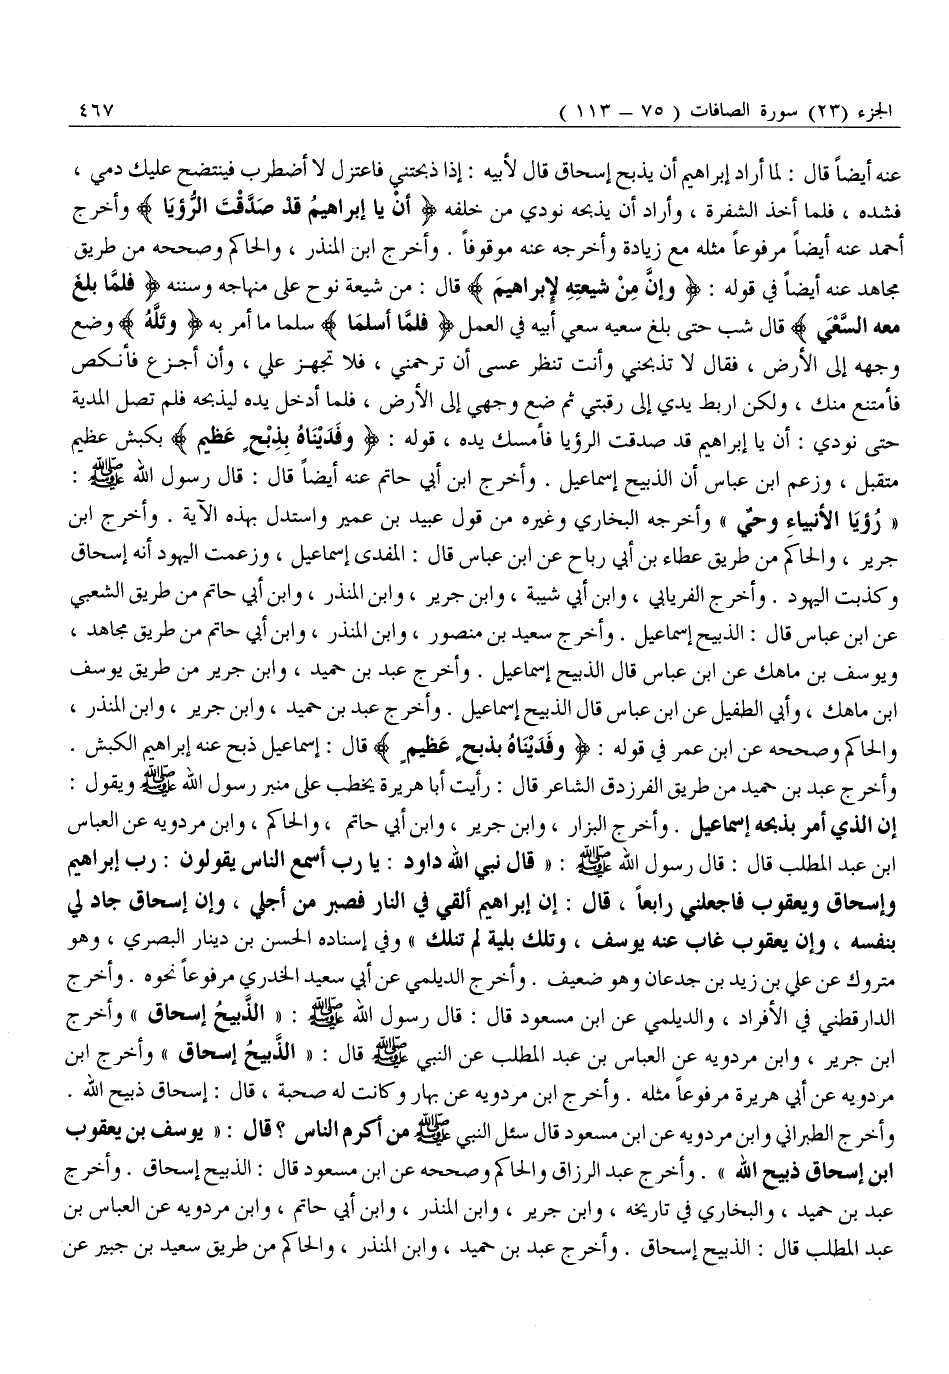 الجزء (٢٣) سورة الصافات ( ٧٥ – ١١٣ ) ٤٦٧
عنه أيضاً قال : لما أراد إبراهيم أن يذبح إسحاق قال لأبيه : إذا ذبحتني فاعتزل لا أضطرب فينتضح عليك دمي ،
فشده ، فلما أخذ الشفرة ، وأراد أن يذبحه نودي من خلفه ﴿ أنْ يا إبراهيمُ قد صَدَّقْتَ الرُّؤيَا ﴾ وأخرج
أحمد عنه أيضاً مرفوعاً مثله مع زيادة وأخرجه عنه موقوفاً . وأخرج ابن المنذر ، والحاكم وصححه من طريق
مجاهد عنه أيضاً في قوله : ﴿ وإنَّ مِنْ شيعتِهِ لإبراهيمَ ﴾ قال : من شيعة نوح على منهاجه وسننه ﴿ فلمَّا بلغَ
معه السَّعْيَ ﴾ قال شب حتى بلغ سعيه سعي أبيه في العمل ﴿ فلمَّا أسلمَا ﴾ سلما ما أمر به ﴿ وتَلَّهُ ﴾ وضع
وجهه إلى الأرض ، فقال لا تذبحني وأنت تنظر عسى أن ترحمني ، فلا تجهز علي ، وأن أجزع فأنكص
فأمتنع منك ، ولكن اربط يدي إلى رقبتي ثم ضع وجهي إلى الأرض ، فلما أدخل يده ليذبحه فلم تصل المدية
حتى نودي : أن يا إبراهيم قد صدقت الرؤيا فأمسك يده ، قوله : ﴿ وفَدَيْنَاهُ بِذِبْحٍ عَظيمٍ ﴾ بكبش عظيم
متقبل ، وزعم ابن عباس أن الذبيح إسماعيل . وأخرج ابن أبي حاتم عنه أيضاً قال : قال رسول الله ﷺ :
« رُؤيَا الأنبياءِ وحيٌ » وأخرجه البخاري وغيره من قول عبيد بن عمير واستدل بهذه الآية . وأخرج ابن
جرير ، والحاكم من طريق عطاء بن أبي رباح عن ابن عباس قال : المفدى إسماعيل ، وزعمت اليهود أنه إسحاق
وكذبت اليهود . وأخرج الفريابي ، وابن أبي شيبة ، وابن جرير ، وابن المنذر ، وابن أبي حاتم من طريق الشعبي
عن ابن عباس قال : الذبيح إسماعيل . وأخرج سعيد بن منصور ، وابن المنذر ، وابن أبي حاتم من طريق مجاهد ،
ويوسف بن ماهك عن ابن عباس قال الذبيح إسماعيل . وأخرج عبد بن حميد ، وابن جرير من طريق يوسف
ابن ماهك ، وأبي الطفيل عن ابن عباس قال الذبيح إسماعيل . وأخرج عبد بن حميد ، وابن جرير ، وابن المنذر ،
والحاكم وصححه عن ابن عمر في قوله : ﴿ وفَدَيْنَاهُ بذبحٍ عَظيمٍ ﴾ قال : إسماعيل ذبح عنه إبراهيم الكبش .
وأخرج عبد بن حميد من طريق الفرزدق الشاعر قال : رأيت أبا هريرة يخطب على منبر رسول الله ﷺ ويقول :
إن الذي أمر بذبحه إسماعيل . وأخرج البزار ، وابن جرير ، وابن أبي حاتم ، والحاكم ، وابن مردويه عن العباس
ابن عبد المطلب قال : قال رسول الله ﷺ : « قال نبي الله داود : يا رب أسمع الناس يقولون : رب إبراهيم
وإسحاق ويعقوب فاجعلني رابعاً ، قال : إن إبراهيم ألقي في النار فصبر من أجلي ، وإن إسحاق جاد لي
بنفسه ، وإن يعقوب غاب عنه يوسف ، وتلك بلية لم تنلك » وفي إسناده الحسن بن دينار البصري ، وهو
متروك عن علي بن زيد بن جدعان وهو ضعيف . وأخرج الديلمي عن أبي سعيد الخدري مرفوعاً نحوه . وأخرج
الدارقطني في الأفراد ، والديلمي عن ابن مسعود قال : قال رسول الله ﷺ : « الذَّبيحُ إسحاق » وأخرج
ابن جرير ، وابن مردويه عن العباس بن عبد المطلب عن النبي ﷺ قال : « الذَّبيحُ إسحاق » وأخرج ابن
مردويه عن أبي هريرة مرفوعاً مثله . وأخرج ابن مردويه عن بهار وكانت له صحبة ، قال : إسحاق ذبيح الله .
وأخرج الطبراني وابن مردويه عن ابن مسعود قال سئل النبي ﷺ من أكرم الناس ؟ قال : « يوسف بن يعقوب
ابن إسحاق ذبيح الله » . وأخرج عبد الرزاق والحاكم وصححه عن ابن مسعود قال : الذبيح إسحاق . وأخرج
عبد بن حميد ، والبخاري في تاريخه ، وابن جرير ، وابن المنذر ، وابن أبي حاتم ، وابن مردويه عن العباس بن
عبد المطلب قال : الذبيح إسحاق . وأخرج عبد بن حميد ، وابن المنذر ، والحاكم من طريق سعيد بن جبير عن